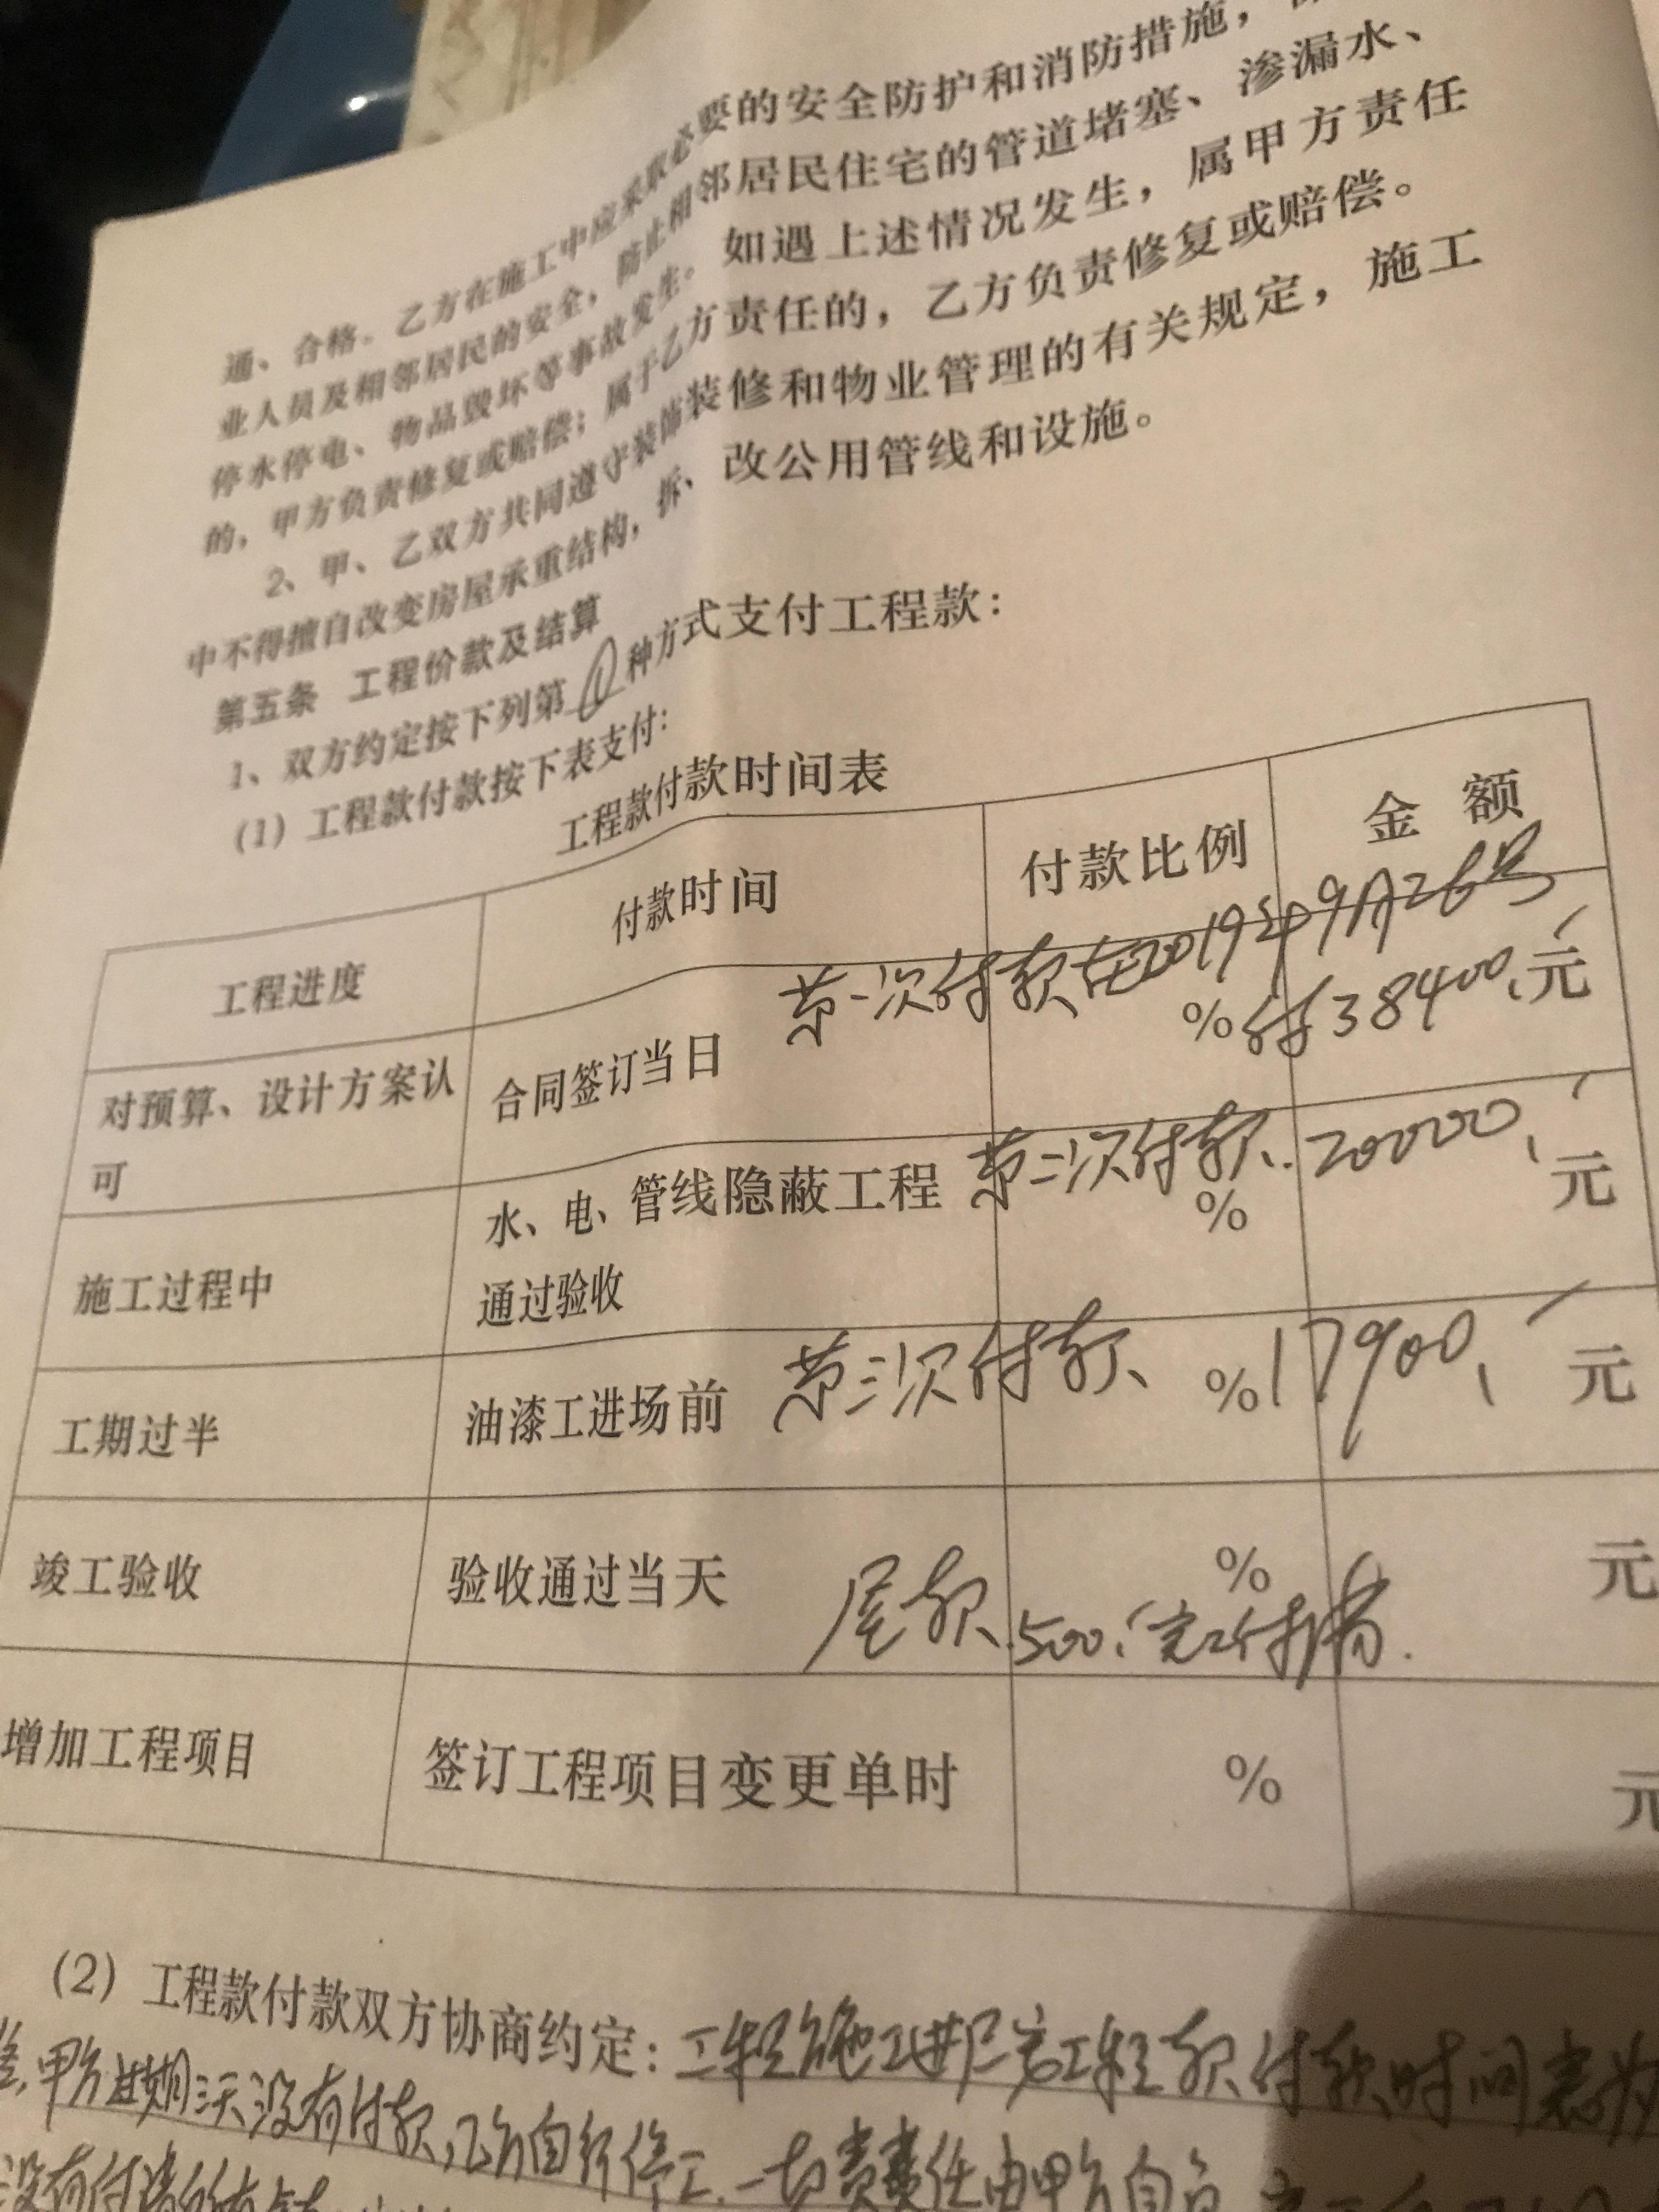 通、合格。乙方在施工中应采取必要的安全防护和消防措施，
业人员及相邻居民的安全，防止相邻居民住宅的管道堵塞、渗漏水、
停水停电、物品毁坏等事故发生。如遇上述情况发生，属甲方责任
的，甲方负责修复或赔偿；属于乙方责任的，乙方负责修复或赔偿。
2、甲、乙双方共同遵守装饰装修和物业管理的有关规定，施工
中不得擅自改变房屋承重结构，拆、改公用管线和设施。
第五条 工程价款及结算
1、双方约定按下列第①种方式支付工程款：
(1) 工程款付款按下表支付：
工程款付款时间表
工程进度 付款时间 付款比例 金 额
第一次付款在2019年9月26号
对预算、设计方案认 合同签订当日 % 付38400.元
可
施工过程中 水、电、管线隐蔽工程 第二次付款. % 20000、元
通过验收
工期过半 油漆工进场前 第三次付款、 % 17900、元
竣工验收 验收通过当天 % 元
尾款.500.完工付清.
增加工程项目 签订工程项目变更单时 % 元
(2) 工程款付款双方协商约定：工程施工进 工程款付款时间表为
甲方过期三天没有付款，乙方自行停工.一切责任由甲方自负
没有付清